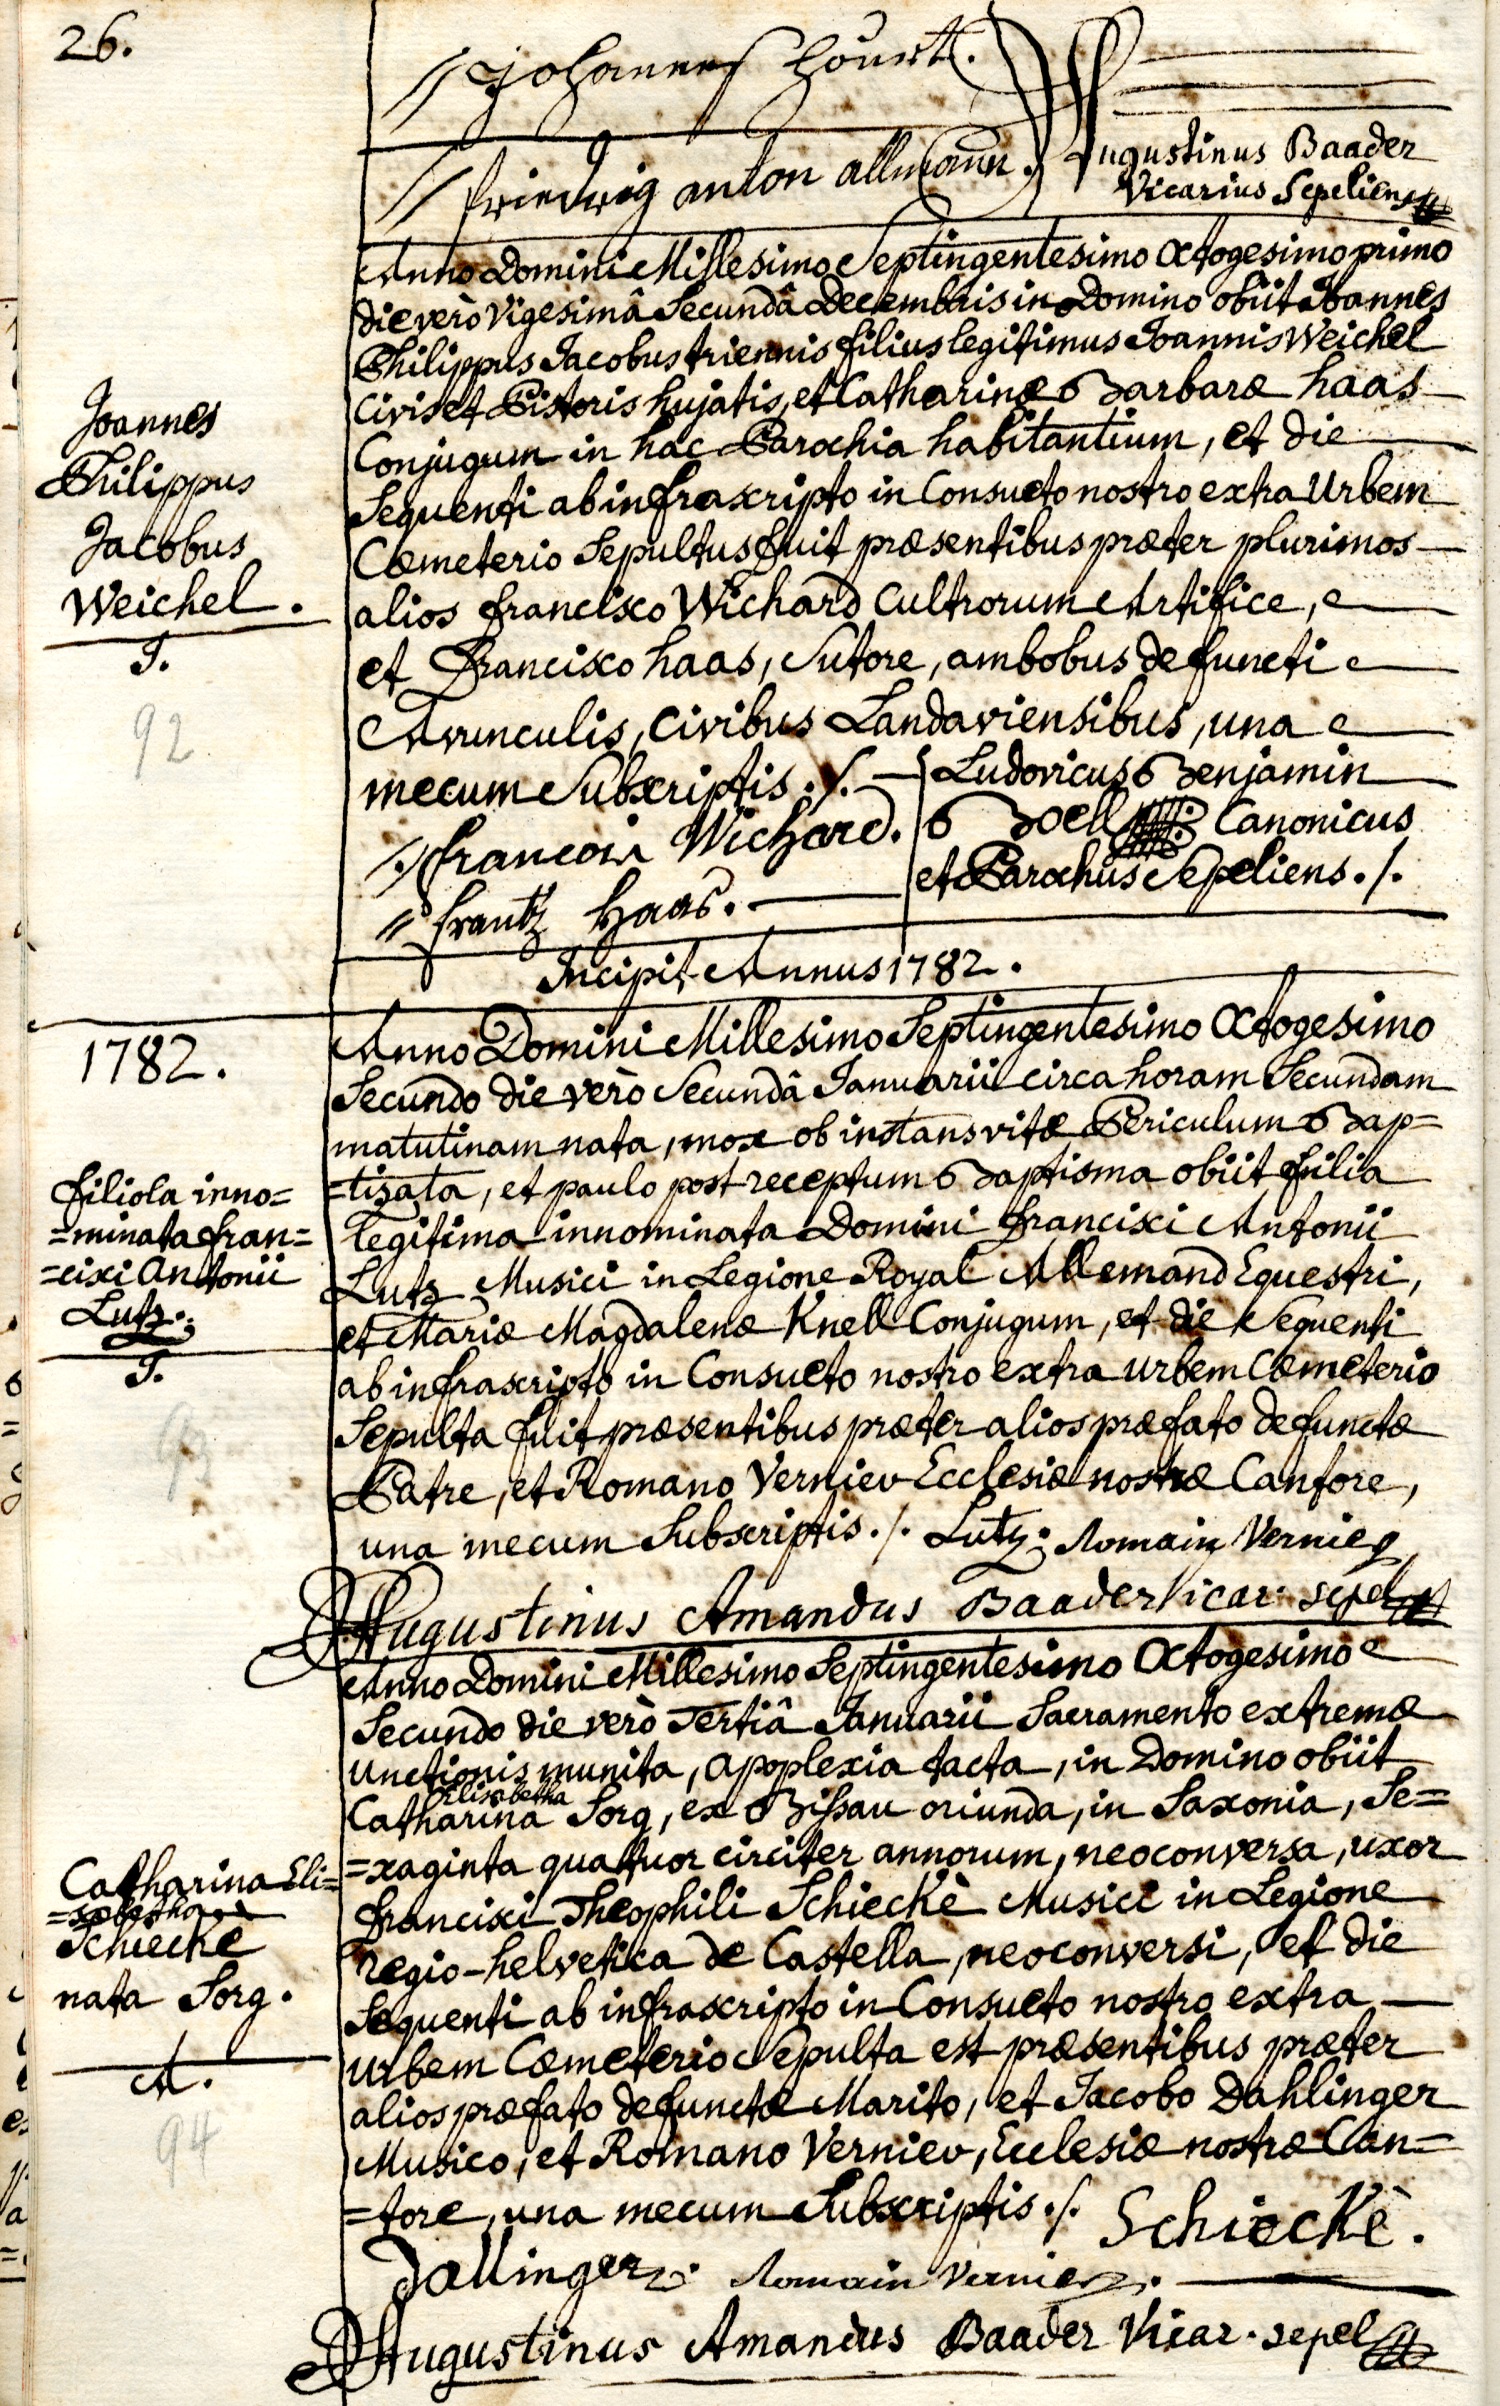 26.
// Johannes
// anton allmann. Augustinus Baader
Vicarius Sepeliens
Anno Domini Millesimo Septingentesimo Octogesimo primo
die verò Vigesimâ Secundâ Decembris in Domino obiit Joannes
Philippus Jacobus triennis filius legitimus Joannis Weichel
Civis et Pistoris hujatis, et Catharinæ Barbaræ haas
Conjugum in hac Parochia habitantium, et die
Sequenti ab infrascripto in Consueto nostro extra Urbem
Cœmeterio Sepultus fuit præsentibus præter plurimos
alios francisco Wichard Cultrorum Artifice,
et Francisco haas, Sutore, ambobus defuncti
Avunculis, Civibus Landaviensibus, una
mecum Subscriptis ./.
// francois Wichard.
// frantz Haas.
Ludovicus Benjamin
Boell Canonicus
et Parochus Sepeliens ./.
Joannes
Philippus
Jacobus
Weichel.
J.
92
Incipit Annus 1782.
1782.
Anno Domini Millesimo Septingentesimo Octogesimo
Secundo die verò Secundâ Januarii circa horam Secundam
matutinam nata, mox ob instans vitæ Periculum Bap=
=tizata, et paulo post receptum Baptisma obiit filia
legitima innominata Domini Francisci Antonii
Lutz Musici in Legione Royal Allemand Equestri,
et Mariæ Magdalenæ Knell Conjugum, et die Sequenti
ab infrascripto in Consueto nostro extra urbem Cœmeterio
Sepulta fuit præsentibus præter alios præfato defunctæ
Patre, et Romano Vernier Ecclesiæ nostræ Cantore,
una mecum Subscriptis ./. Lutz. Romain Vernier
Augustinus Amandus Baader Vicar. sepel
filiola inno=
=minata fran=
=cisci Antonii
Lutz.
J.
93
Anno Domini Millesimo Septingentesimo Octogesimo
Secundo die verò Tertiâ Januarii Sacramento extremæ
unctionis munita, apoplexia tacta, in Domino obiit
Elisabetha
Catharina Sorg, ex Bissau oriunda, in Saxonia, Se=
=xaginta quattuor circiter annorum, neoconversa, uxor
francisci Theophili Schieckè Musici in Legione
regio-helvetica de Castella, neoconversi, et die
Sequenti ab infrascripto in Consueto nostro extra
urbem Cœmeterio Sepulta est præsentibus præter
alios præfato defunctæ Marito, et Jacobo Dahlinger
Musico, et Romano Vernier, Ecclesiæ nostræ Can=
=tore, una mecum Subscriptis ./. Schieckè.
Dallinger. Romain Vernier.
Augustinus Amandus Baader Vicar. sepel
Catharina Eli=
=sabetha
Schieckè
nata Sorg.
A.
94